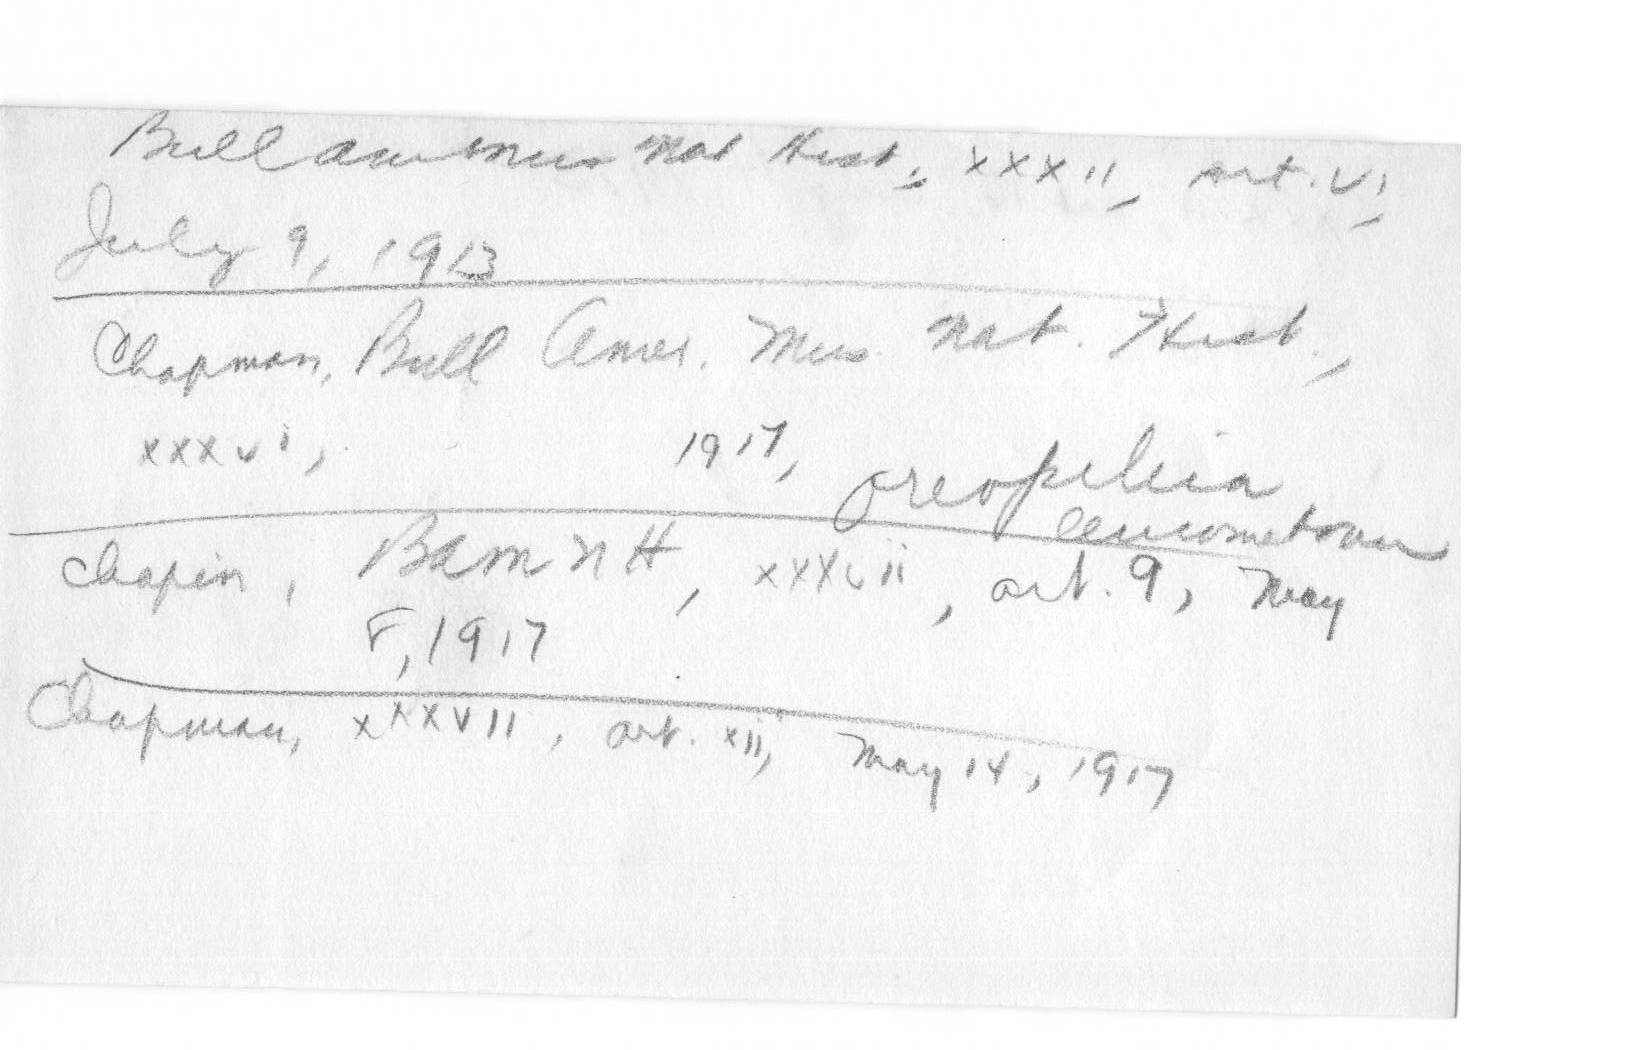 Bull am mus Nat Hist., XXXII, art. VI,
July 9, 1913
Chapman, Bull Amer. Mus. Nat. Hist.,
XXXVI, 1917, Oreopeleia
leucometopia
Chapin, BAMNH, XXXVii, art. 9, May
5, 1917
Chapman, XXXVII, art. xii, May 14, 1917